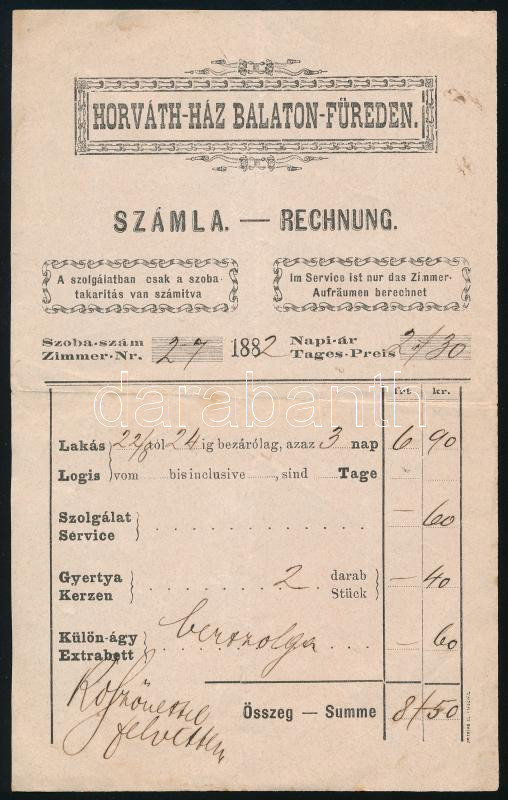 HORVÁTH-HÁZ BALATON-FÜREDEN.
SZÁMLA. — RECHNUNG.
A szolgálatban csak a szoba-
takaritás van számitva
Im Service ist nur das Zimmer-
Aufräumen berechnet
Szoba-szám
Zimmer-Nr. 27 1882 Napi-ár
Tages-Preis 2/30
darabanth
frt. kr.
Lakás 22/8 tól 24 ig bezárólag, azaz 3 nap 6 90
Logis vom bis inclusive, sind Tage
Szolgálat
Service — 60
Gyertya
Kerzen 2 darab
Stück — 40
Külön-ágy
Extrabett — 60
Köszönettel
felvettem
Összeg — Summe 8/50